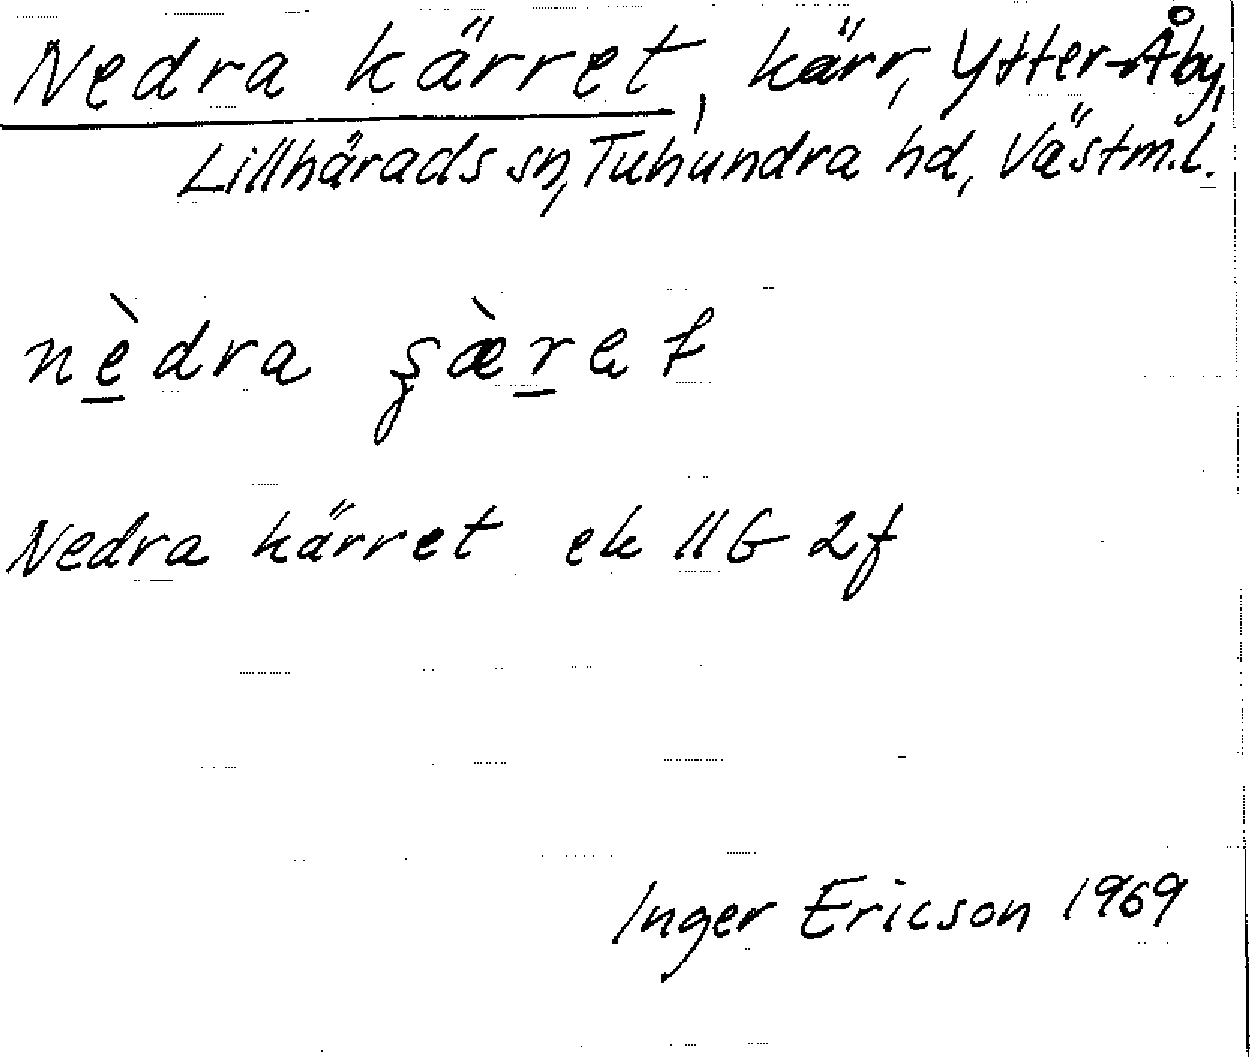 Nedra kärret, kärr, Ytter-Åby,
Lillhärads sn, Tuhundra hd, Västm.l.
nèdra ʂæ̀ret
Nedra kärret ek 11G 2f
Inger Ericson 1969